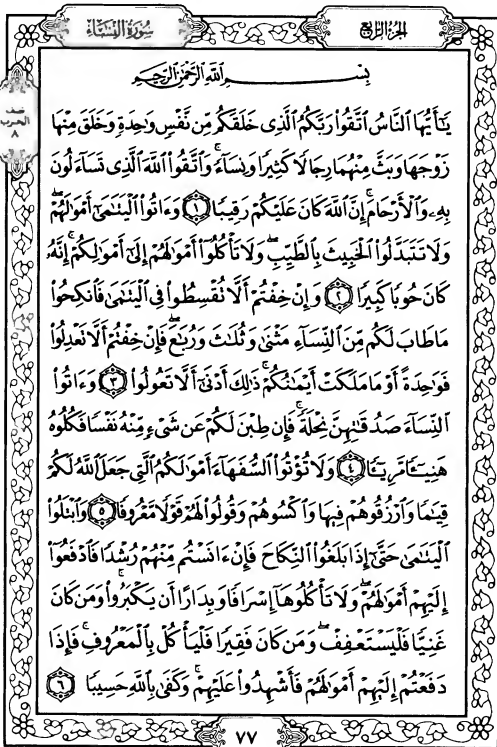 الجزء الرابع
سورة النساء
نصف
الحزب
٨
بِسْمِ اللَّهِ الرَّحْمَٰنِ الرَّحِيمِ
يَـٰٓأَيُّهَا ٱلنَّاسُ ٱتَّقُوا۟ رَبَّكُمُ ٱلَّذِى خَلَقَكُم مِّن نَّفْسٍ وَٰحِدَةٍ وَخَلَقَ مِنْهَا
زَوْجَهَا وَبَثَّ مِنْهُمَا رِجَالًا كَثِيرًا وَنِسَآءً ۚ وَٱتَّقُوا۟ ٱللَّهَ ٱلَّذِى تَسَآءَلُونَ
بِهِۦ وَٱلْأَرْحَامَ ۚ إِنَّ ٱللَّهَ كَانَ عَلَيْكُمْ رَقِيبًا ١ وَءَاتُوا۟ ٱلْيَتَـٰمَىٰٓ أَمْوَٰلَهُمْ ۖ
وَلَا تَتَبَدَّلُوا۟ ٱلْخَبِيثَ بِٱلطَّيِّبِ ۖ وَلَا تَأْكُلُوٓا۟ أَمْوَٰلَهُمْ إِلَىٰٓ أَمْوَٰلِكُمْ ۚ إِنَّهُۥ
كَانَ حُوبًا كَبِيرًا ٢ وَإِنْ خِفْتُمْ أَلَّا تُقْسِطُوا۟ فِى ٱلْيَتَـٰمَىٰ فَٱنكِحُوا۟
مَا طَابَ لَكُم مِّنَ ٱلنِّسَآءِ مَثْنَىٰ وَثُلَـٰثَ وَرُبَـٰعَ ۖ فَإِنْ خِفْتُمْ أَلَّا تَعْدِلُوا۟
فَوَٰحِدَةً أَوْ مَا مَلَكَتْ أَيْمَـٰنُكُمْ ۚ ذَٰلِكَ أَدْنَىٰٓ أَلَّا تَعُولُوا۟ ٣ وَءَاتُوا۟
ٱلنِّسَآءَ صَدُقَـٰتِهِنَّ نِحْلَةً ۚ فَإِن طِبْنَ لَكُمْ عَن شَىْءٍ مِّنْهُ نَفْسًا فَكُلُوهُ
هَنِيٓـًٔا مَّرِيٓـًٔا ٤ وَلَا تُؤْتُوا۟ ٱلسُّفَهَآءَ أَمْوَٰلَكُمُ ٱلَّتِى جَعَلَ ٱللَّهُ لَكُمْ
قِيَـٰمًا وَٱرْزُقُوهُمْ فِيهَا وَٱكْسُوهُمْ وَقُولُوا۟ لَهُمْ قَوْلًا مَّعْرُوفًا ٥ وَٱبْتَلُوا۟
ٱلْيَتَـٰمَىٰ حَتَّىٰٓ إِذَا بَلَغُوا۟ ٱلنِّكَاحَ فَإِنْ ءَانَسْتُم مِّنْهُمْ رُشْدًا فَٱدْفَعُوٓا۟
إِلَيْهِمْ أَمْوَٰلَهُمْ ۖ وَلَا تَأْكُلُوهَآ إِسْرَافًا وَبِدَارًا أَن يَكْبَرُوا۟ ۚ وَمَن كَانَ
غَنِيًّا فَلْيَسْتَعْفِفْ ۖ وَمَن كَانَ فَقِيرًا فَلْيَأْكُلْ بِٱلْمَعْرُوفِ ۚ فَإِذَا
دَفَعْتُمْ إِلَيْهِمْ أَمْوَٰلَهُمْ فَأَشْهِدُوا۟ عَلَيْهِمْ ۚ وَكَفَىٰ بِٱللَّهِ حَسِيبًا ٦
٧٧